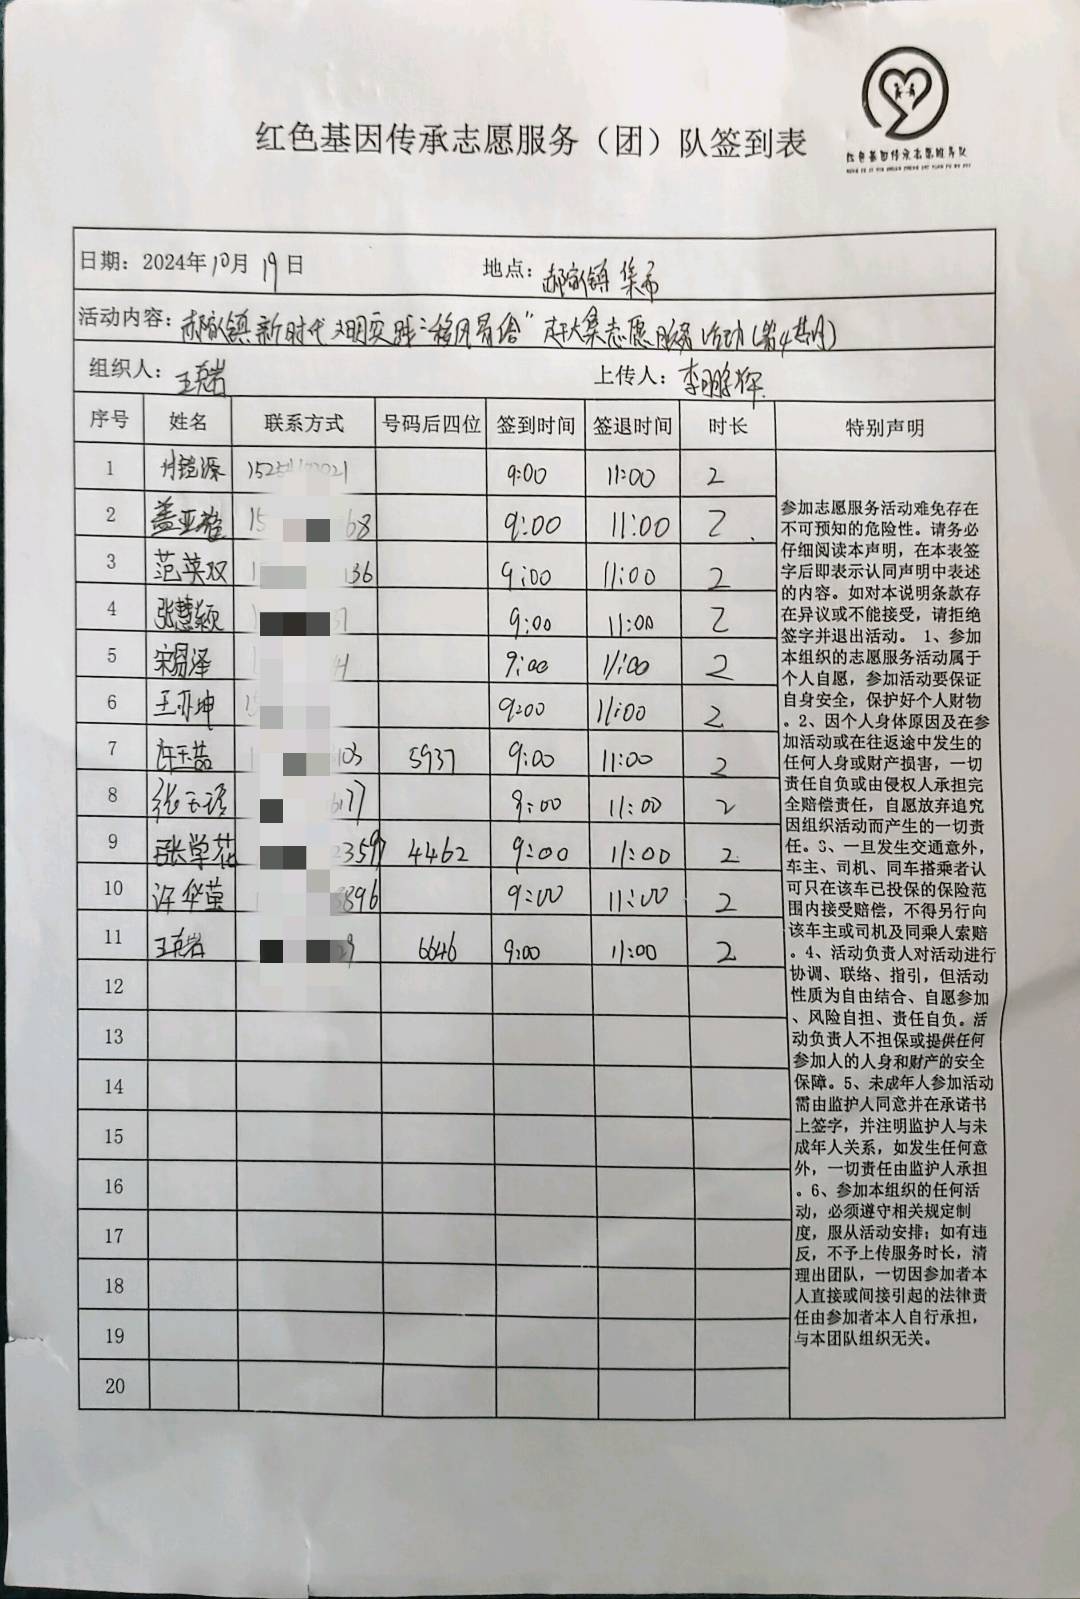 红色基因传承志愿服务队
红色基因传承志愿服务（团）队签到表
日期：2024年10月19日 地点：郝家镇集市
活动内容：郝家镇新时代文明实践"移风易俗"赶大集志愿服务活动(第4期)
组织人：王克岩 上传人：李鹏辉
序号 姓名 联系方式 号码后四位 签到时间 签退时间 时长 特别声明
1 9:00 11:00 2
2 盖亚雄 15 68 9:00 11:00 2
3 范英双 1 136 9:00 11:00 2
4 张慧颖 9:00 11:00 2
5 宋易泽 9:00 11:00 2
6 王亦坤 15 9:00 11:00 2
7 许玉喆 103 5937 9:00 11:00 2
8 张玉 177 9:00 11:00 2
9 张学花 2359 4462 9:00 11:00 2
10 许华萤 3896 9:00 11:00 2
11 王克岩 29 6646 9:00 11:00 2
12
13
14
15
16
17
18
19
20
参加志愿服务活动难免存在
不可预知的危险性。请务必
仔细阅读本声明，在本表签
字后即表示认同声明中表述
的内容。如对本说明条款存
在异议或不能接受，请拒绝
签字并退出活动。 1、参加
本组织的志愿服务活动属于
个人自愿，参加活动要保证
自身安全，保护好个人财物
。2、因个人身体原因及在参
加活动或在往返途中发生的
任何人身或财产损害，一切
责任自负或由侵权人承担完
全赔偿责任，自愿放弃追究
因组织活动而产生的一切责
任。3、一旦发生交通意外，
车主、司机、同车搭乘者认
可只在该车已投保的保险范
围内接受赔偿，不得另行向
该车主或司机及同乘人索赔
。4、活动负责人对活动进行
协调、联络、指引，但活动
性质为自由结合、自愿参加
、风险自担、责任自负。活
动负责人不担保或提供任何
参加人的人身和财产的安全
保障。5、未成年人参加活动
需由监护人同意并在承诺书
上签字，并注明监护人与未
成年人关系，如发生任何意
外，一切责任由监护人承担
。6、参加本组织的任何活
动，必须遵守相关规定制
度，服从活动安排；如有违
反，不予上传服务时长，清
理出团队，一切因参加者本
人直接或间接引起的法律责
任由参加者本人自行承担，
与本团队组织无关。